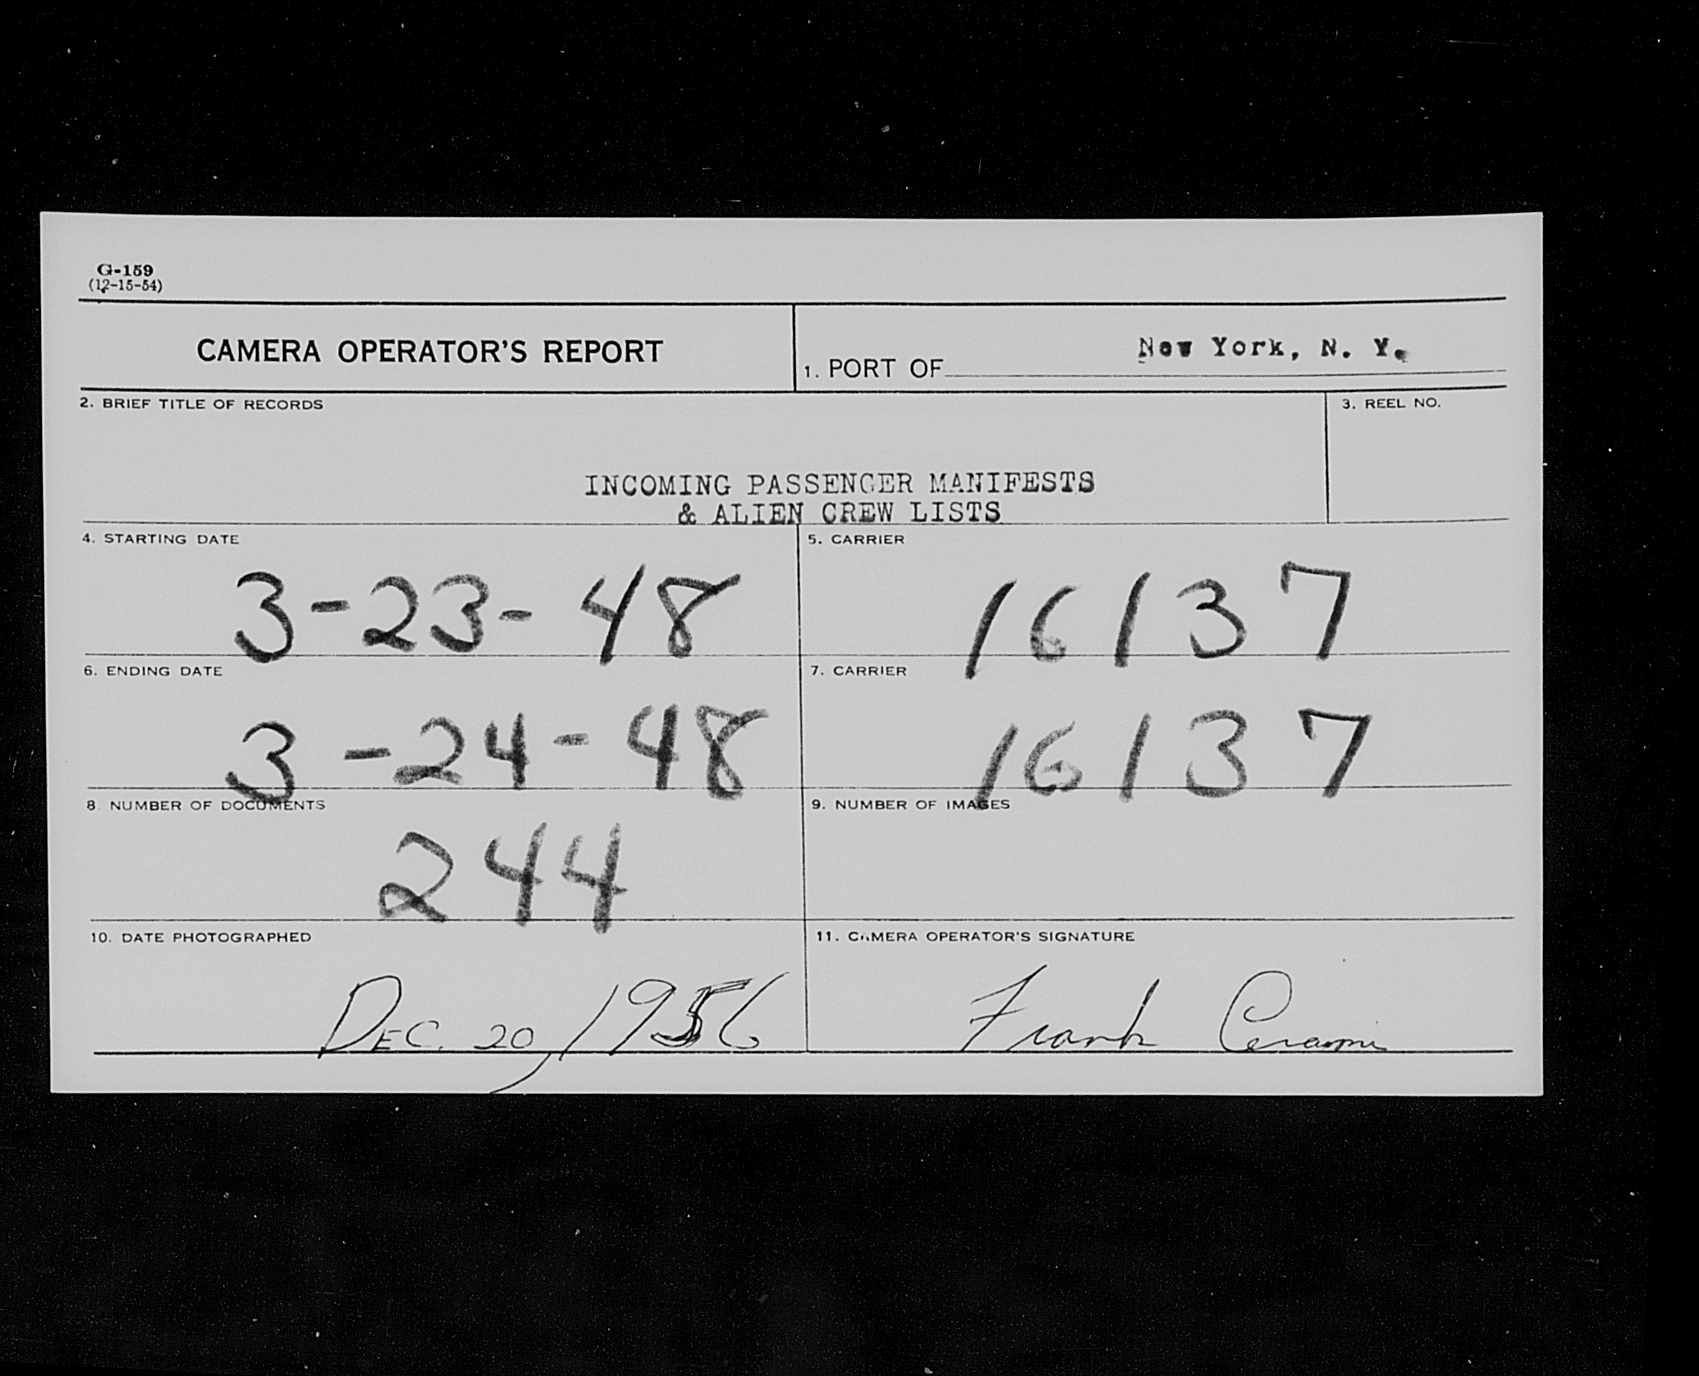 G-159
(12-15-54)
CAMERA OPERATOR'S REPORT
1. PORT OF New York, N. Y.
2. BRIEF TITLE OF RECORDS
3. REEL NO.
INCOMING PASSENGER MANIFESTS
& ALIEN CREW LISTS
4. STARTING DATE
3-23-48
5. CARRIER
16137
6. ENDING DATE
3-24-48
7. CARRIER
16137
8. NUMBER OF DOCUMENTS
244
9. NUMBER OF IMAGES
10. DATE PHOTOGRAPHED
DEC. 20, 1956
11. CAMERA OPERATOR'S SIGNATURE
Frank